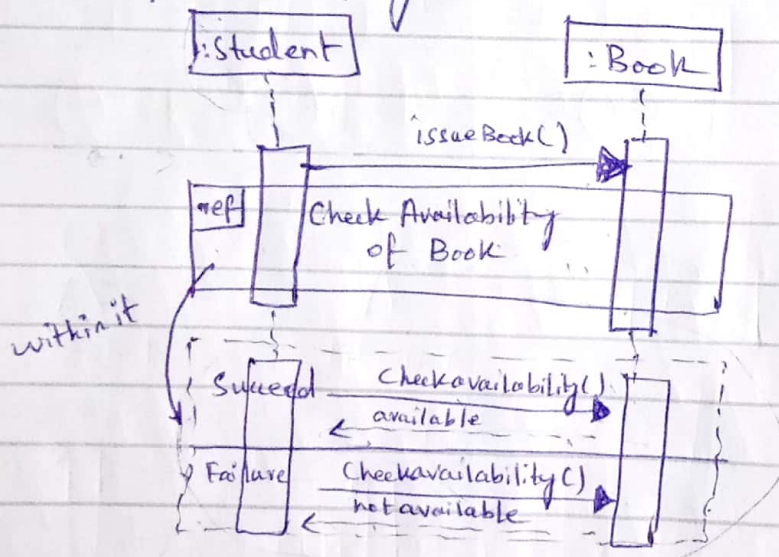 :Student
:Book
issueBook()
ref
Check Availability
of Book
within it
Succeed
Checkavailability()
available
Failure
Checkavailability()
not available